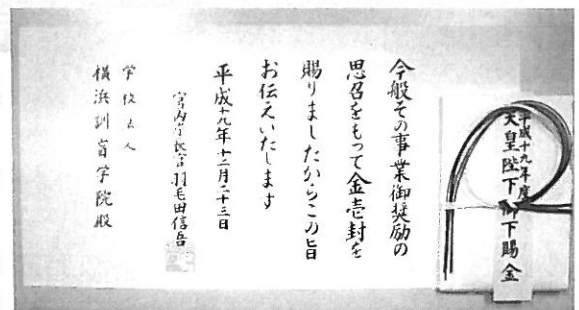 平成十九年度
天皇陛下御下賜金
今般その事業御奨励の
思召をもって金壱封を
賜りましたからこの旨
お伝えいたします
平成十九年十二月二十三日
宮内庁長官 羽毛田信吾
学校法人
横浜訓盲学院殿